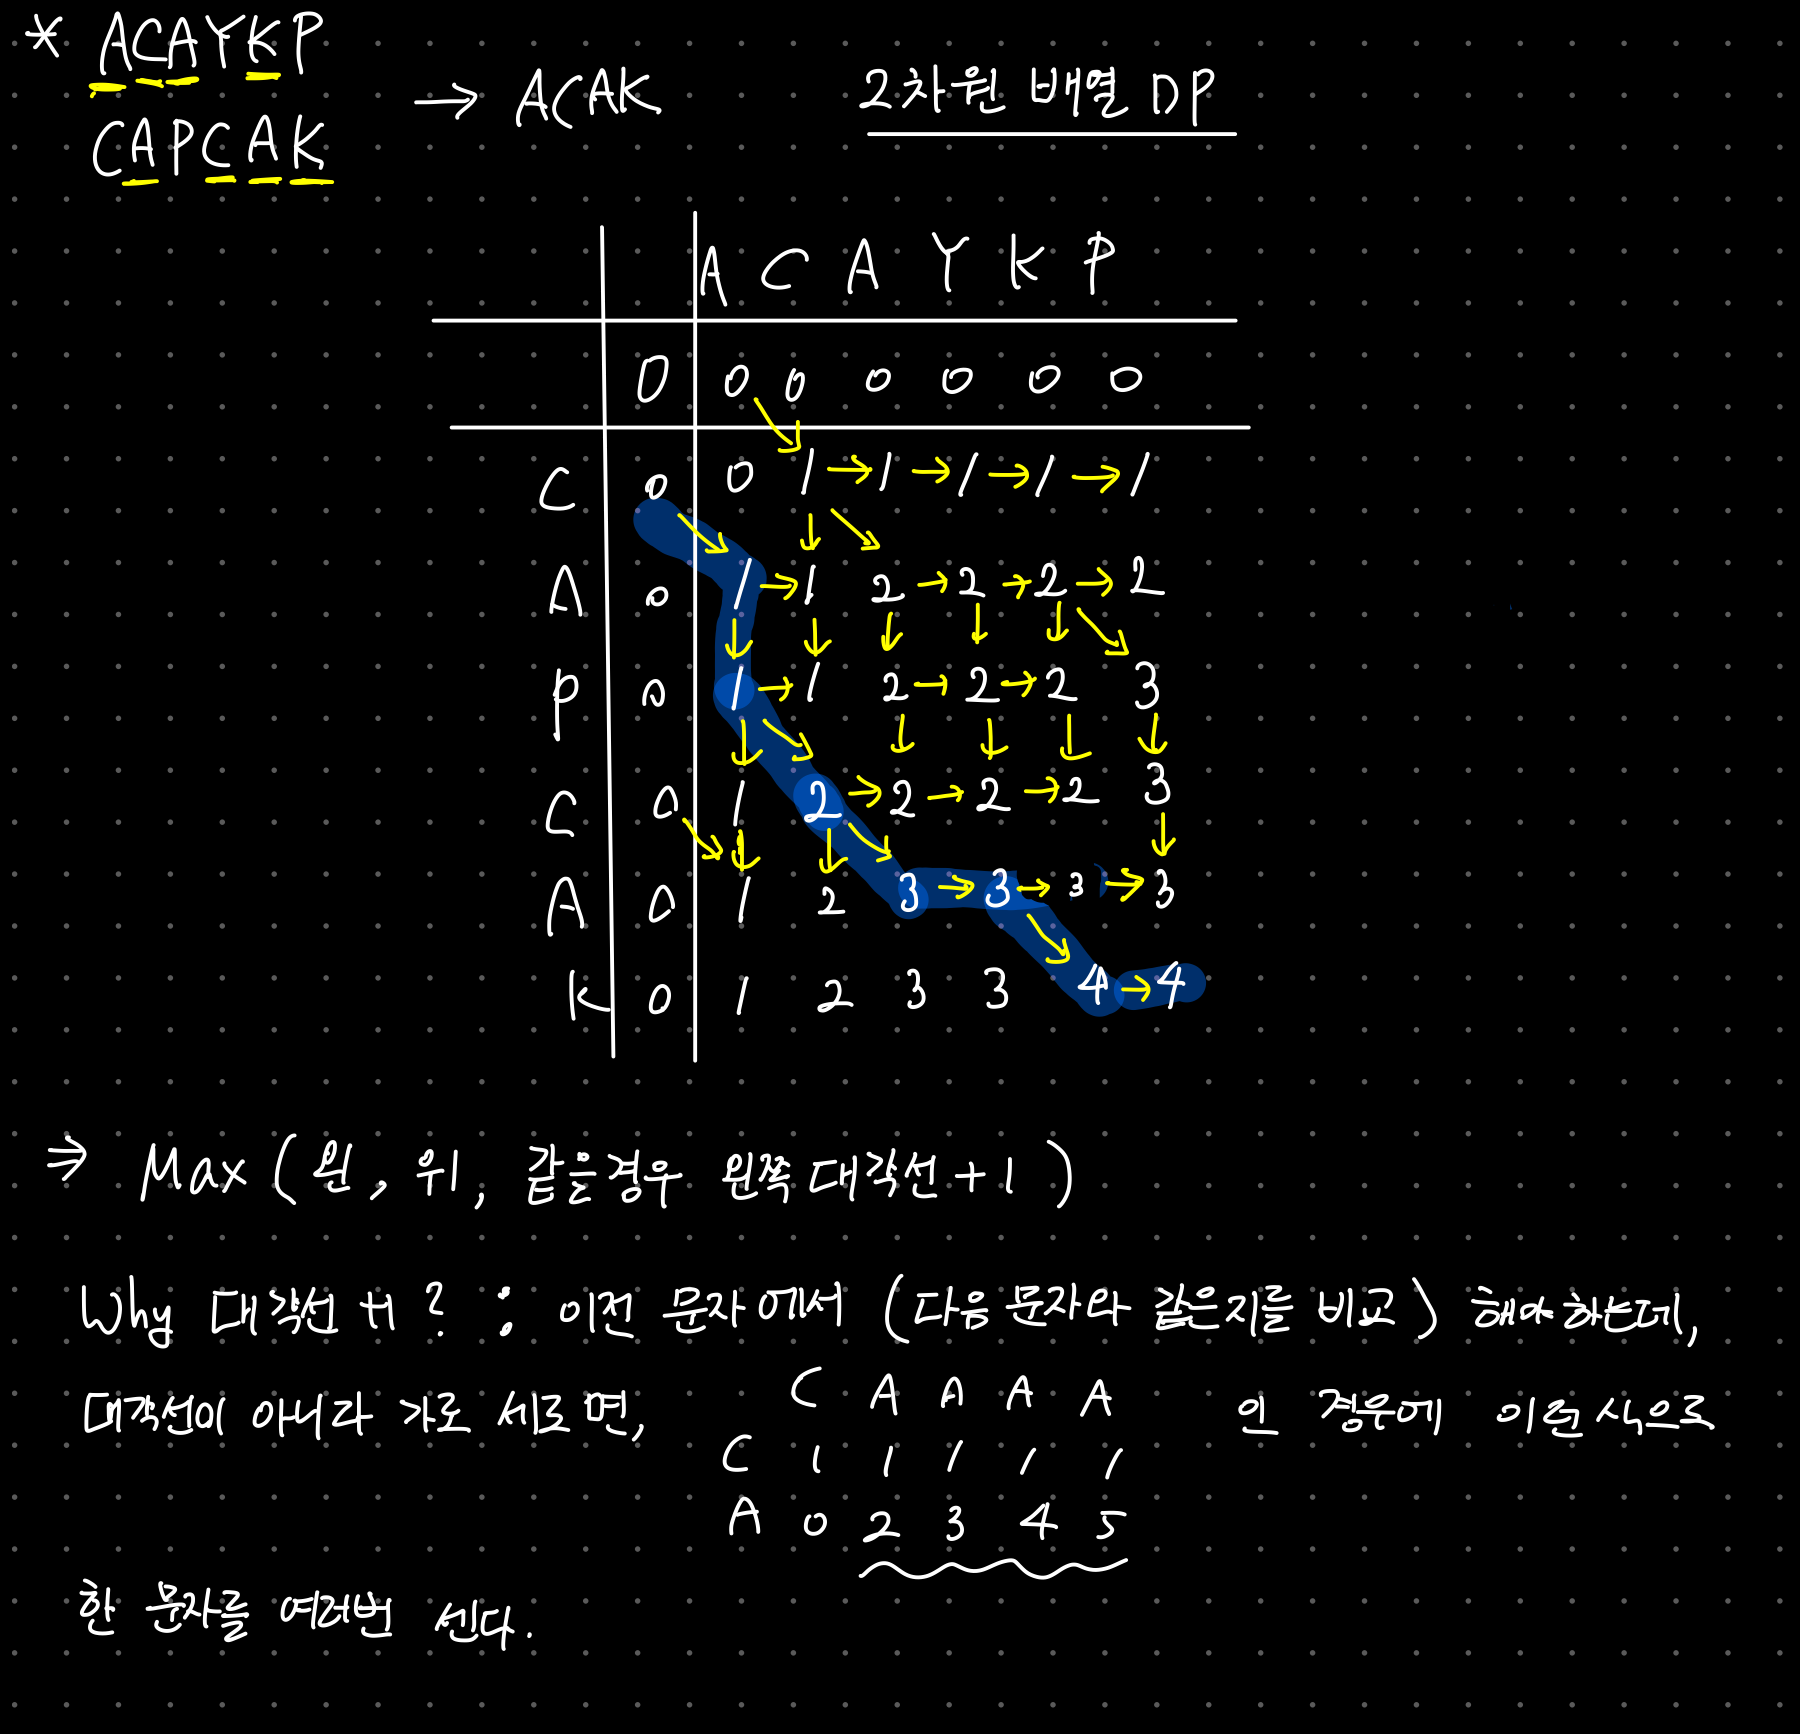 * ACAYKP
→ ACAK 2차원 배열 DP
CAPCAK
A C A Y K P
0 0 0 0 0 0 0
C 0 0 1 → 1 → 1 → 1 → 1
A 0 1 → 1 2 → 2 → 2 → 2
P 0 1 → 1 2 → 2 → 2 3
C 0 1 2 → 2 → 2 → 2 3
A 0 1 2 3 → 3 → 3 → 3
K 0 1 2 3 3 4 → 4
⇒ Max ( 왼, 위, 같을경우 왼쪽 대각선 + 1 )
Why 대각선 +1? : 이전 문자에서 (다음 문자와 같은지를 비교) 해야하는데,
대각선이 아니라 가로 세로면, C A A A A 인 경우에 이런식으로
C 1 1 1 1 1
A 0 2 3 4 5
한 문자를 여러번 센다.